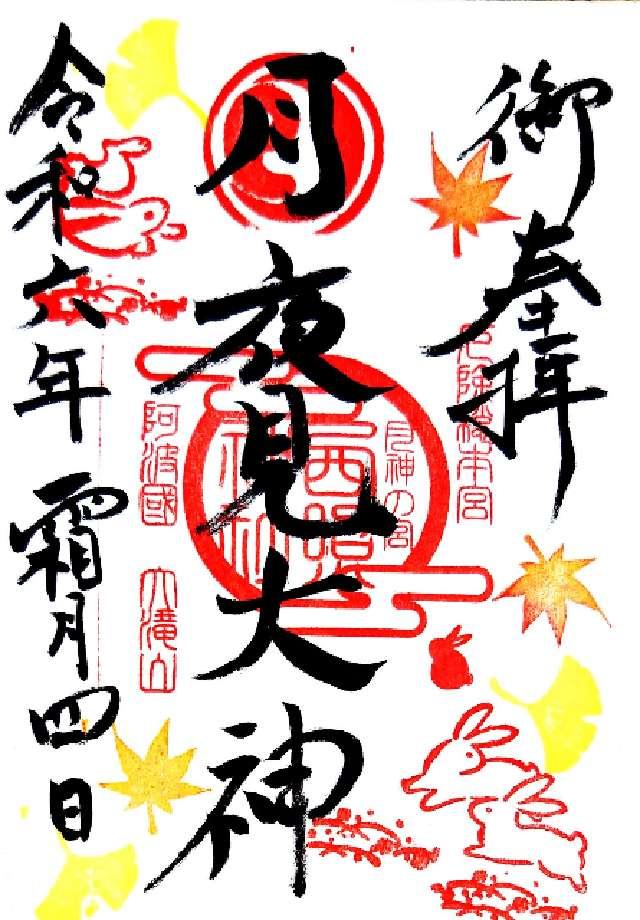 御奉拝
厄除総本宮
月神の宮
月夜見大神
西照神社
阿波國 大滝山
令和六年 霜月四日